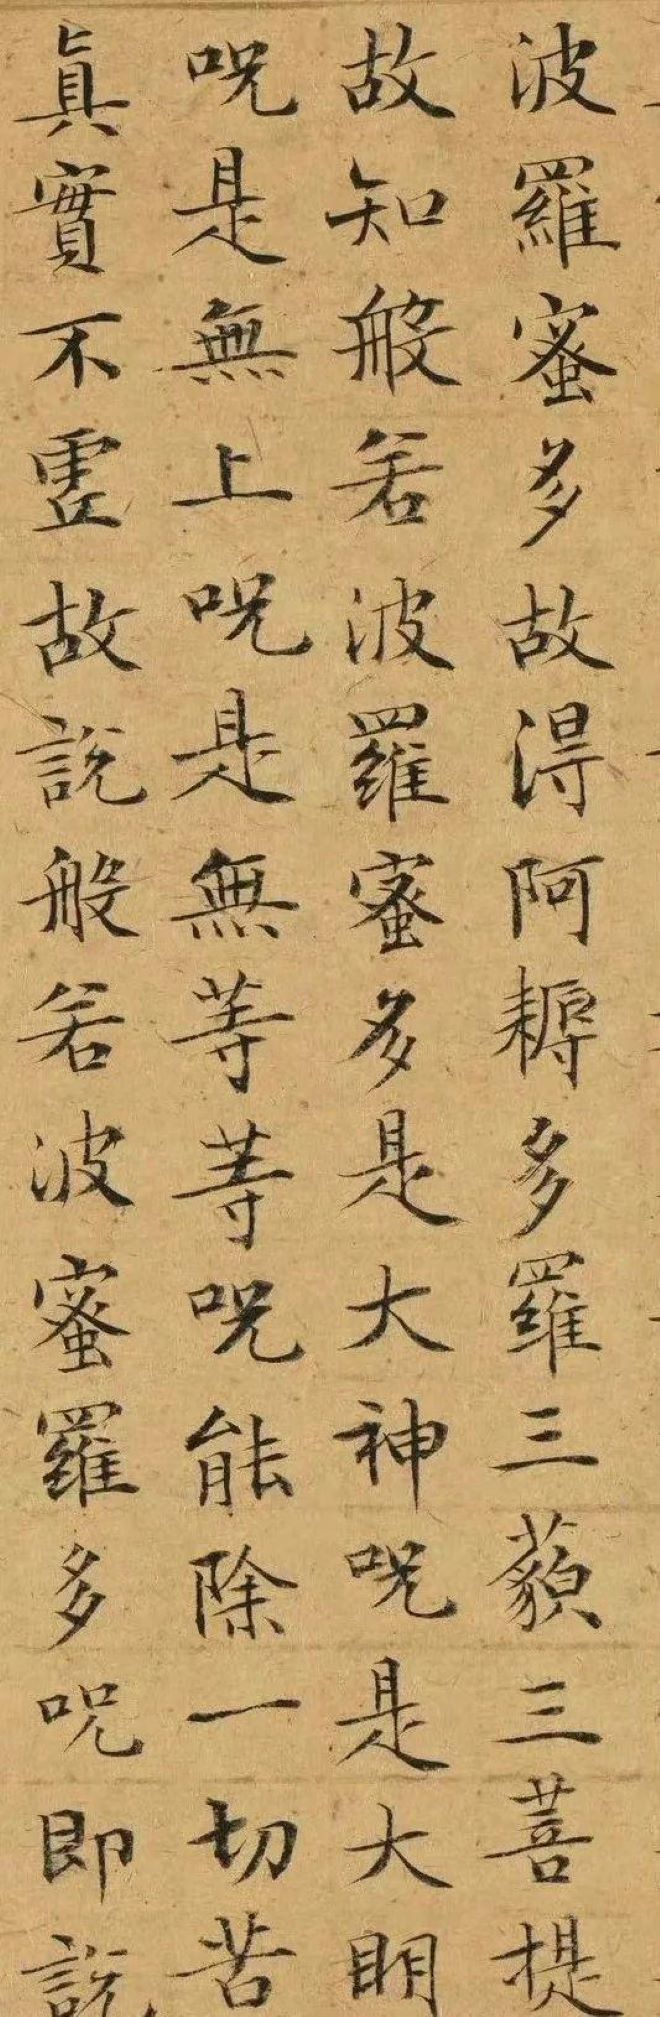 波羅蜜多故得阿耨多羅三藐三菩提
故知般若波羅蜜多是大神呪是大明
呪是無上呪是無等等呪能除一切苦
真實不虛故說般若波蜜羅多呪即說